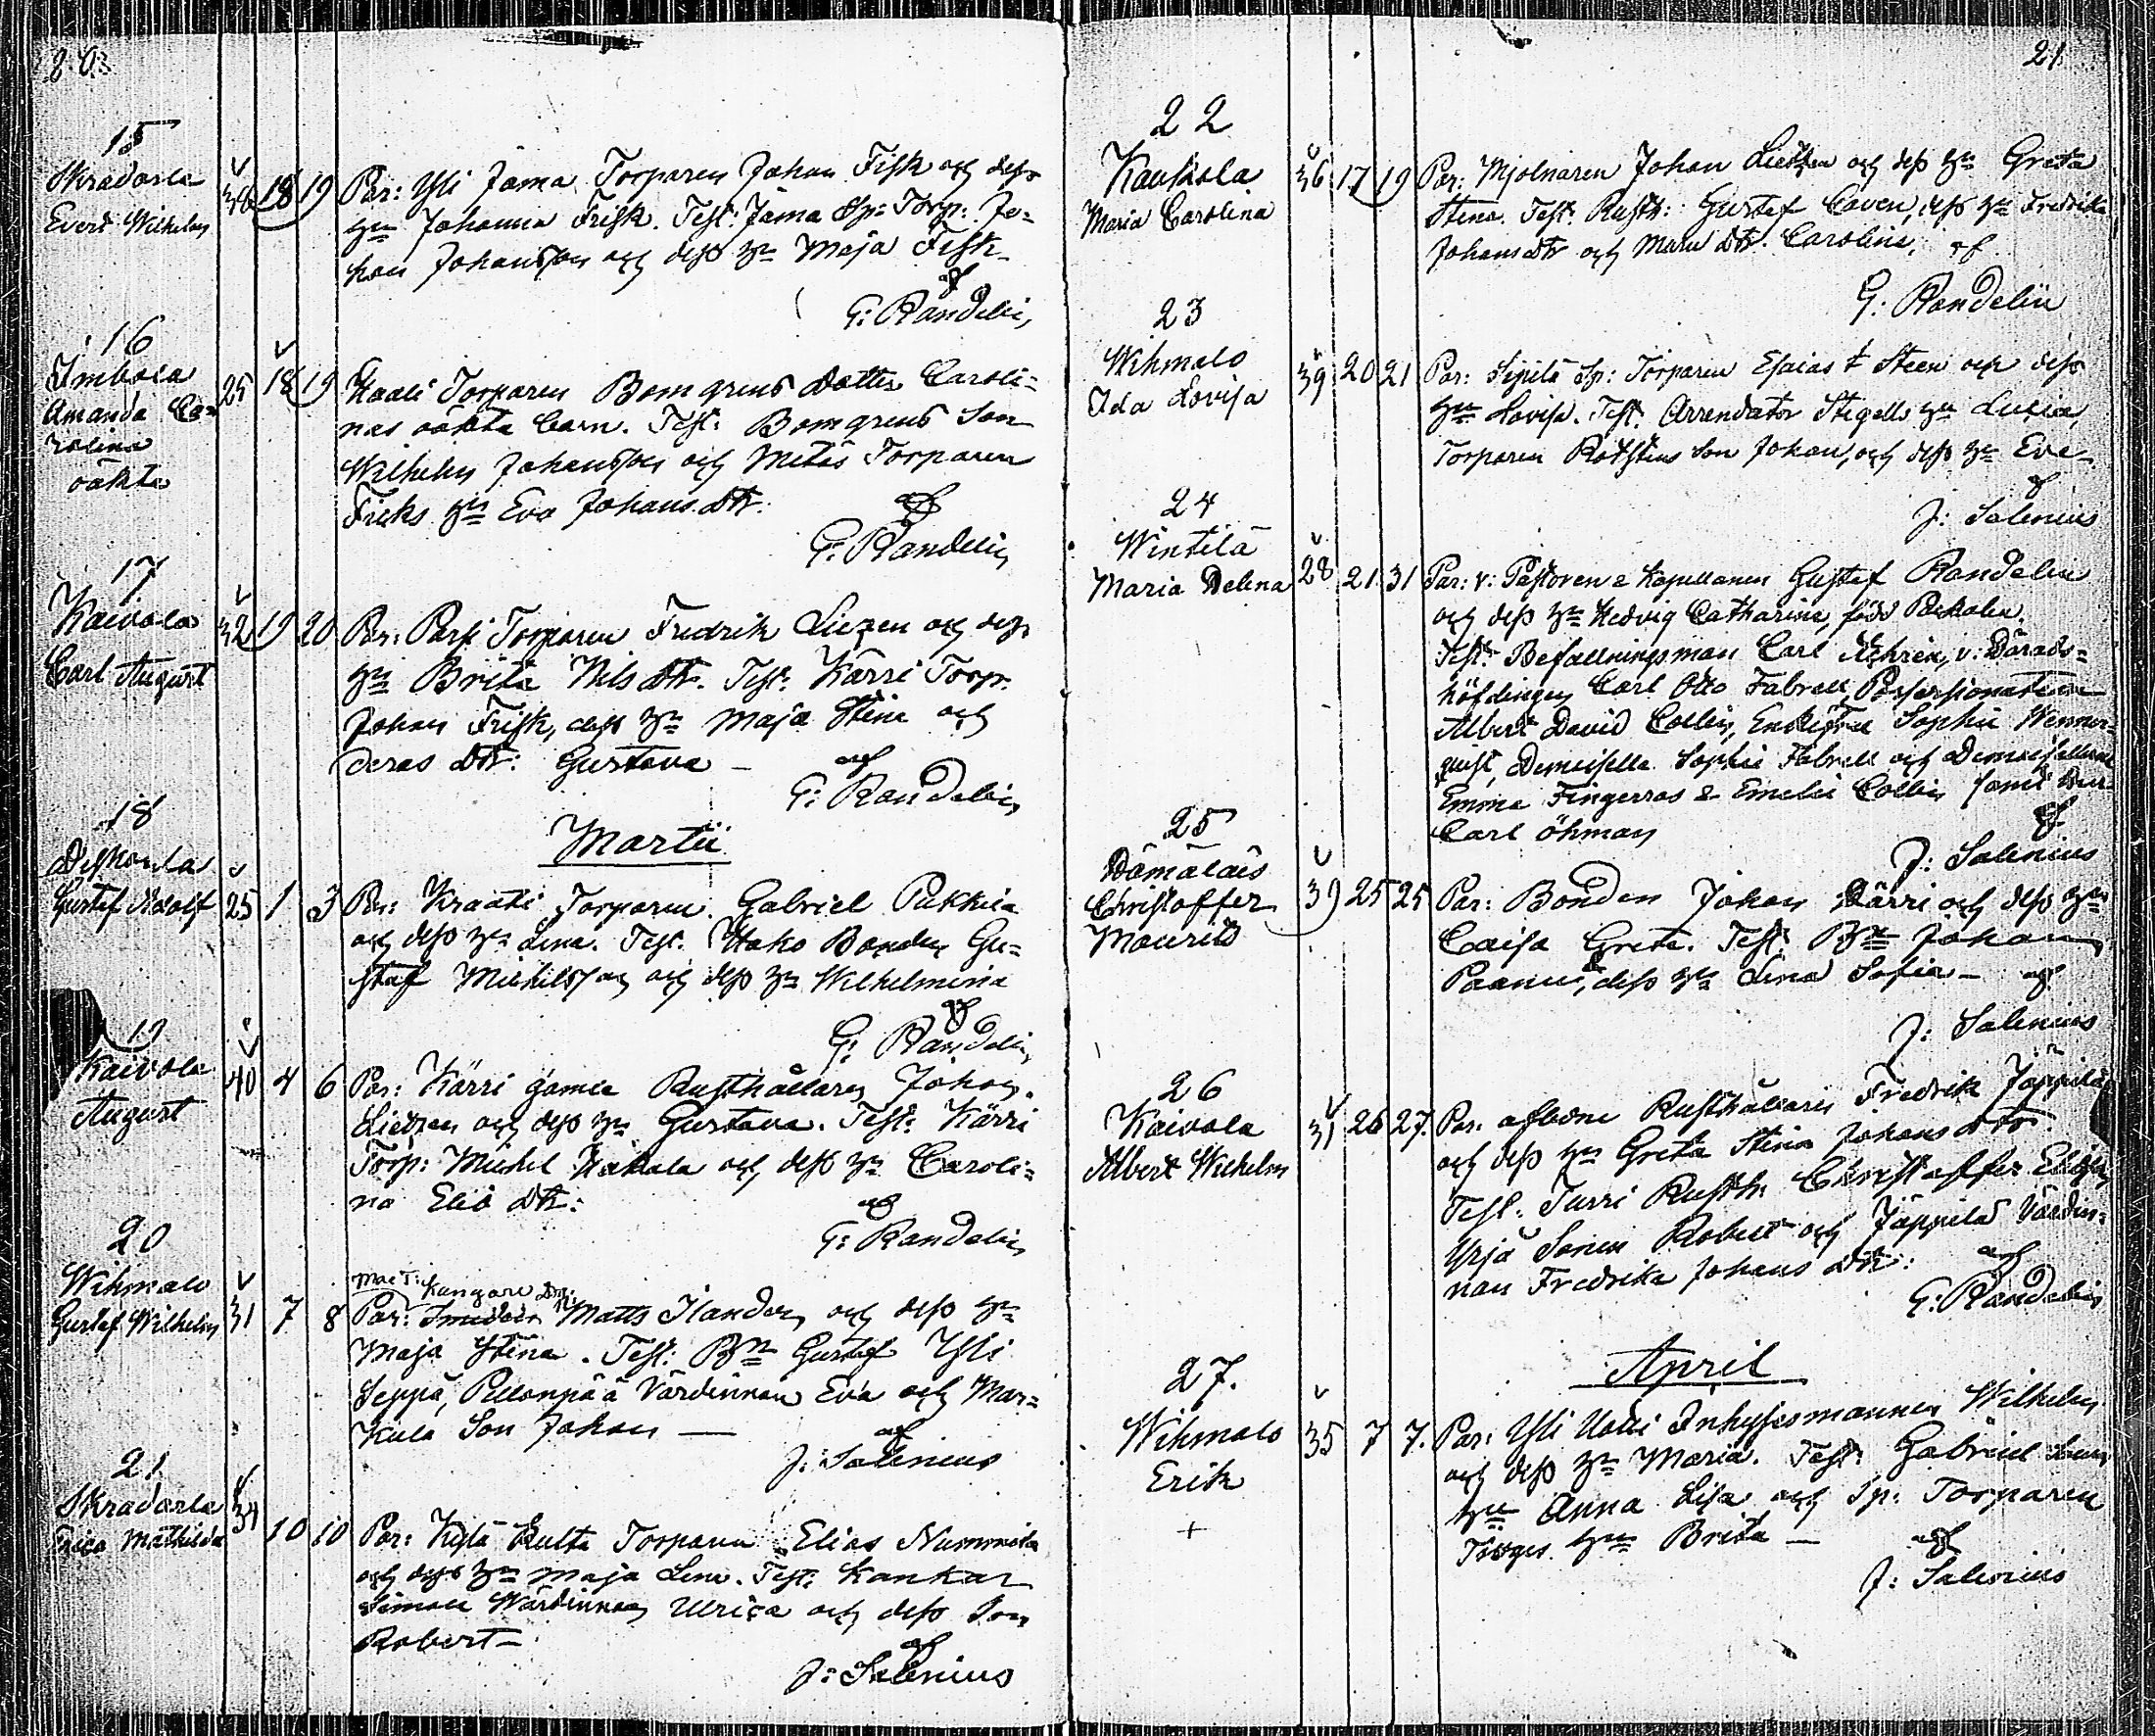 20
15
Skradarla
Evert Wilhelm
38 18 19
Par: Yli Jama Torparen Johan Fisk och dess
hu Johanna Frisk. Test: Jama Sp: Torp: Jo=
han Johansson och dess hu Maja Fisk
af
G: Randelin
16
Imbola
Amanda Ca=
rolina
oäkta
25 18 19
Torparen Bomgrens dotter Caroli=
nas oäkta barn. Test: Bomgrens Son
Wilhelm Johansson och Torparen
Fisks hu Eva Johans dtr:
af
G: Randelin
17
Kaivola
Carl August
32 19 20
Par: Torparen Fredrik Liezen och dess
hu Brita Nils dtr. Test: Kärri Torp.
Johan Frisk, dess hu Maja Stina och
deras dtr: Gustava —
af
G: Randelin
Martii
18
Gustaf Adolf
25 1 3
Par: Kraati Torparen Gabriel Pukkila
och dess hu Lena. Test. Hako Bonden Gu=
staf Michelsson och dess hu Wilhelmina
af
G: Randelin
19
Kaivola
August
40 4 6
Par: Kärri gamla Rusthållaren Johan
Lietzen och dess hu Gustava. Test: Kärri
Torp: Michel Hakala och dess hu Caroli=
na Elis dtr:
af
G: Randelin
20
Wihmalo
Gustaf Wilhelm
31 7 8
Kangare
Par: Matts Ilander och dess hu
Maja Stina. Test: Bn Gustaf Yli
Seppä, Pellonpää Värdinnan Eva och Mar=
kula Son Johan —
af
J: Salenius
21
Skradarla
Mathilda
34 10 10
Par: Torparen Elias Nummila
och dess hu Maja Lena. Test: Kankar
Simola Wärdinnan Ulrica och dess Son
Robert —
af
J: Salenius
21
22
Kaukola
Maria Carolina
36 17 19
Par: Mjolnaren Johan Lietzen och dess hu Greta
Stina. Test: Rusth: Gustaf Caven, dess hu Fredrika
Johansdtr och dtr. Carolina, af
G: Randelin
23
Wihmalo
Ida Lovisa
39 20 21
Par: Sipilä Sp: Torparen Esaias Steen och dess
hu Lovisa. Test. Arrendator Stigells hu Lucia,
Torparen Rotstens Son Johan, och dess hu Eva
af
J: Salenius
24
Wintelä
Maria Delena
28 21 31
Par: v: Pastoren & Kapellanen Gustaf Randelin
och dess hu Hedvig Catharina, född
Test: Befallningsman Carl v: Härads=
höfdingen Carl Otto Fabrell,
Albert David Collin, Enkefru Sophie Wenner=
quist, Demoiselle Sophie Fabrell och Demoisellerna
Emma Fingerroos & Emelie Collin samt
Carl Öhman
af
J: Salenius
25
Christoffer
Maurits
39 25 25
Par: Bonden Johan Kärri och dess hu
Caisa Greta. Test: Bn Johan
Paanu, dess hu Lina Sofia — af
J: Salenius
26
Kaivola
Albert Wilhelm
31 26 27.
Par. Rusthållaren Fredrik Jäppilä
och dess hu Greta Stina Johans dtr.
Test: Turri Rusth: Christoffer
Yrjä Sonen Robert och Jäppilä Värdin=
nan Fredrika Johans dtr:
af
G: Randelin
April
27.
Wihmalo
Erik
+
35 7 7.
Par: Yli Inhysesmannen Wilhelm
och dess hu Maria. Test: Gabriel
hu Anna Lisa och Sp: Torparen
hu Brita —
af
J: Salenius